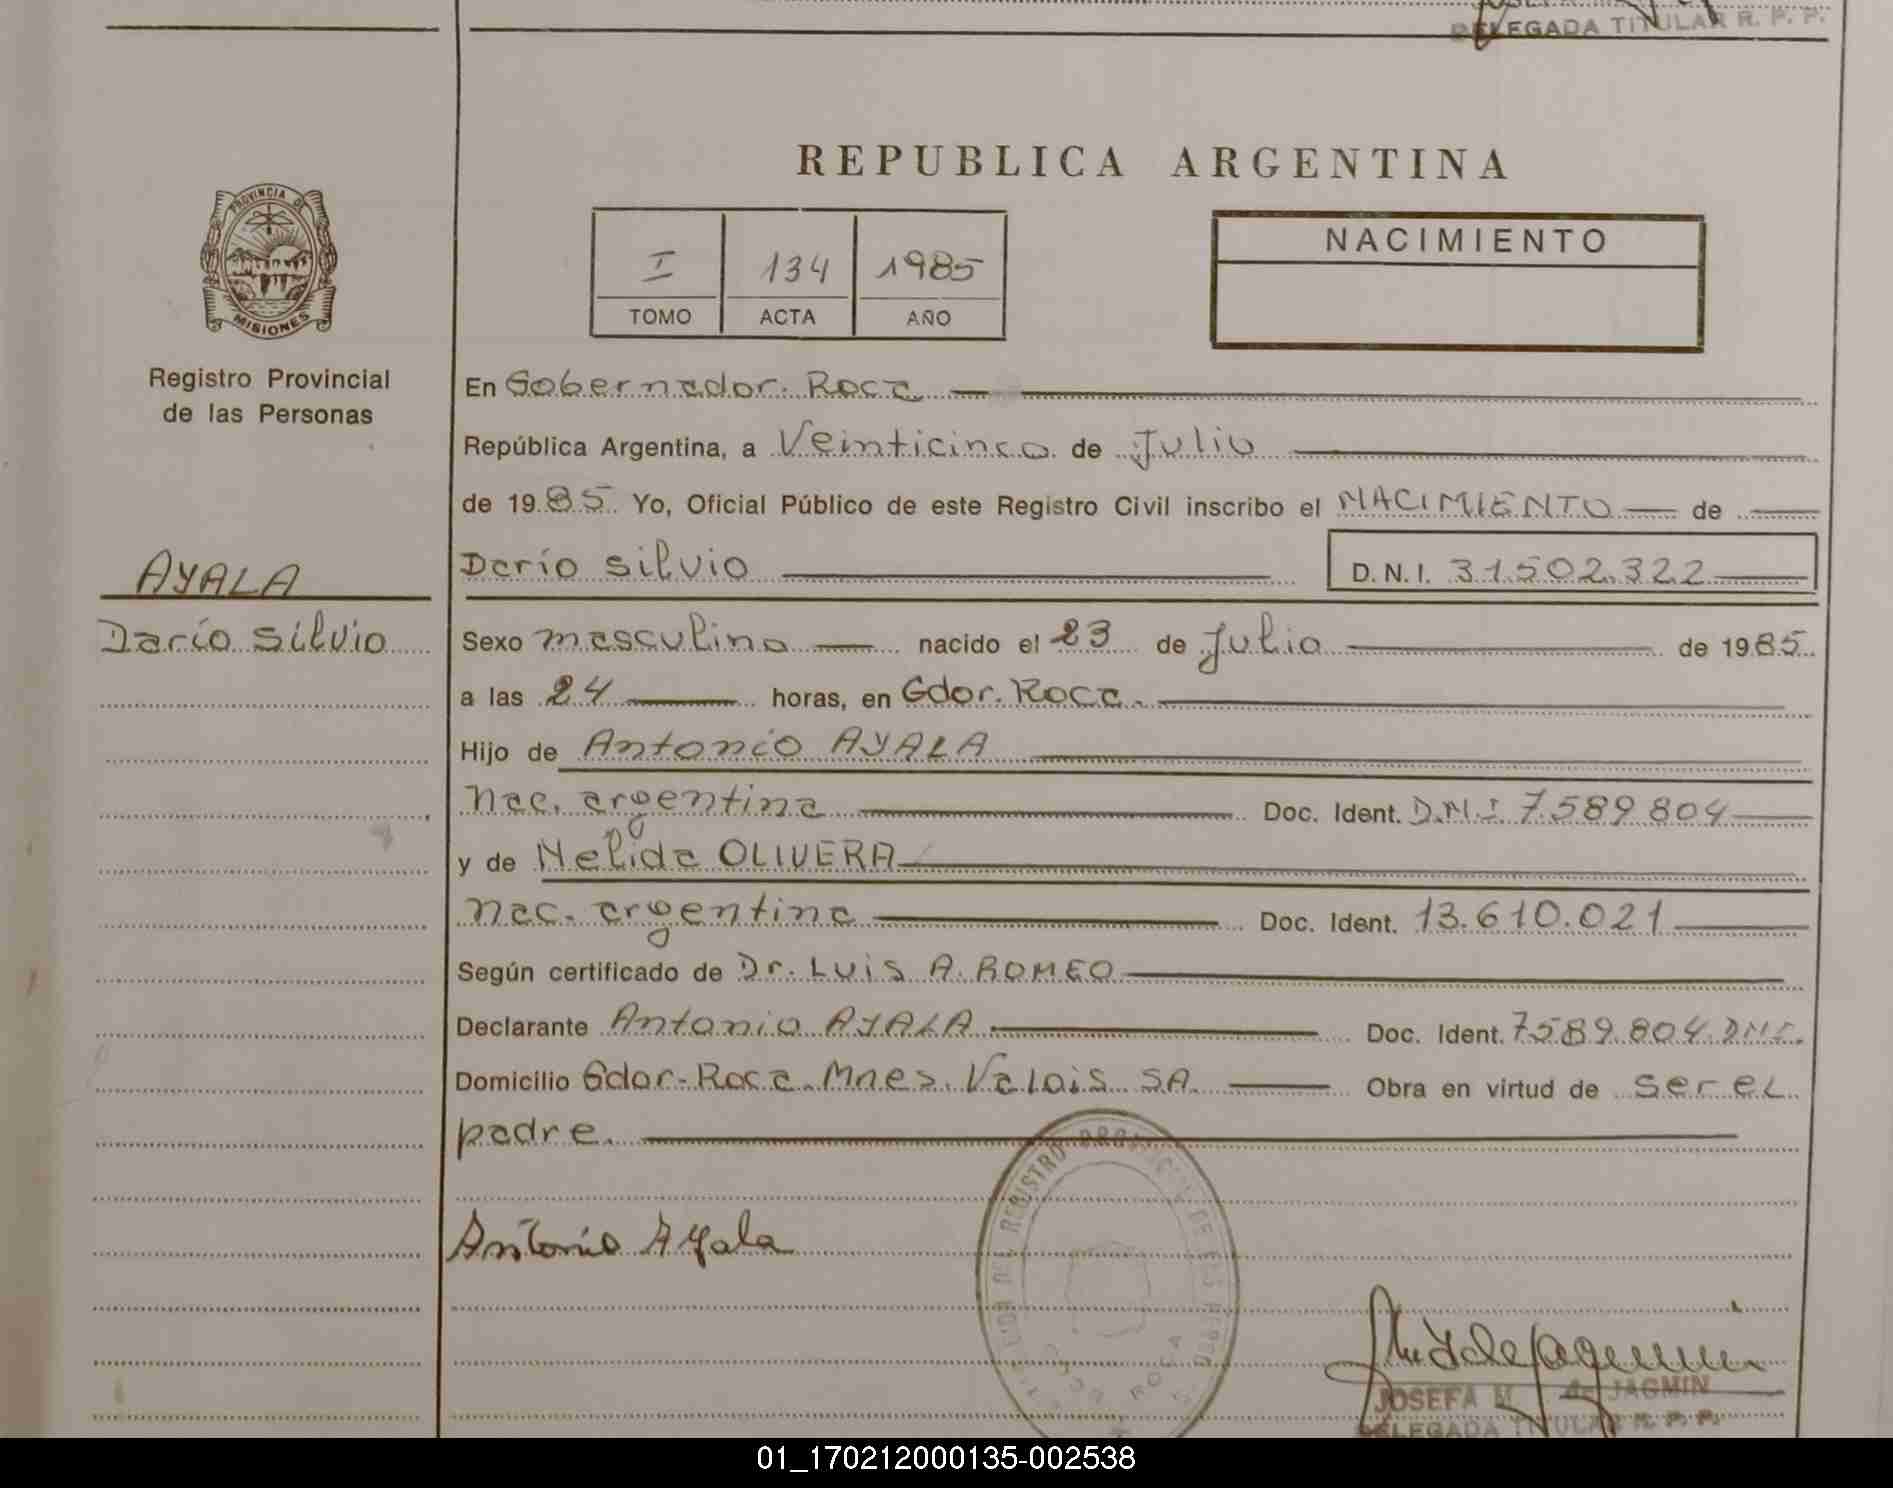 DELEGADA TITULAR R. P. P.
REPUBLICA ARGENTINA
PROVINCIA DE
MISIONES
I 134 1985
TOMO ACTA AÑO
NACIMIENTO
Registro Provincial
de las Personas
En Gobernador. Roca
República Argentina, a Veinticinco de Julio
de 1985 Yo, Oficial Público de este Registro Civil inscribo el NACIMIENTO de
AYALA
Darío Silvio
Darío Silvio D.N.I. 31.502.322
Sexo masculino nacido el 23 de Julio de 1985
a las 24 horas, en Gdor. Roca.
Hijo de Antonio AYALA
Nac. argentina Doc. Ident. D.N.I. 7.589.804
y de Nelida OLIVERA
Nac. argentina Doc. Ident. 13.610.021
Según certificado de Dr. LUIS A. ROMEO
Declarante Antonio AYALA Doc. Ident. 7.589.804 D.N.I.
Domicilio Gdor-Roca. Mnes. Valois SA. Obra en virtud de ser el
padre.
DEL REGISTRO PROVINCIAL DE LAS PERSONAS
ROCA
Antonio Ayala
JOSEFA M. de JAGMIN
DELEGADA TITULAR R. P. P.
01_170212000135-002538